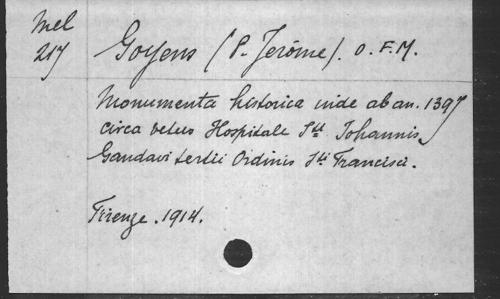 Mel
217
Goyens (P. Jerôme). O.F.M.
Monumenta historica inde ab an. 1397
circa vetus Hospitale Sti Johannis
Gandavi tertii Ordinis Sti Francisci.
Firenze. 1914.